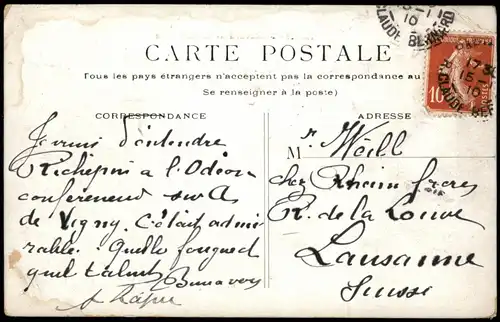 CARTE POSTALE
Tous les pays étrangers n'acceptent pas la correspondance au
Se renseigner à la poste)
CORRESPONDANCE
ADRESSE
Je viens d'entendre
Richepin à l'Odéon
conférencer sur A
de Vigny. C'était admi
rable. Quelle fougue et
quel talent
M. r Weill
chez Rheim frères
R. de la Louve
Lausanne
Suisse
10
R. CLAUDE BERNARD